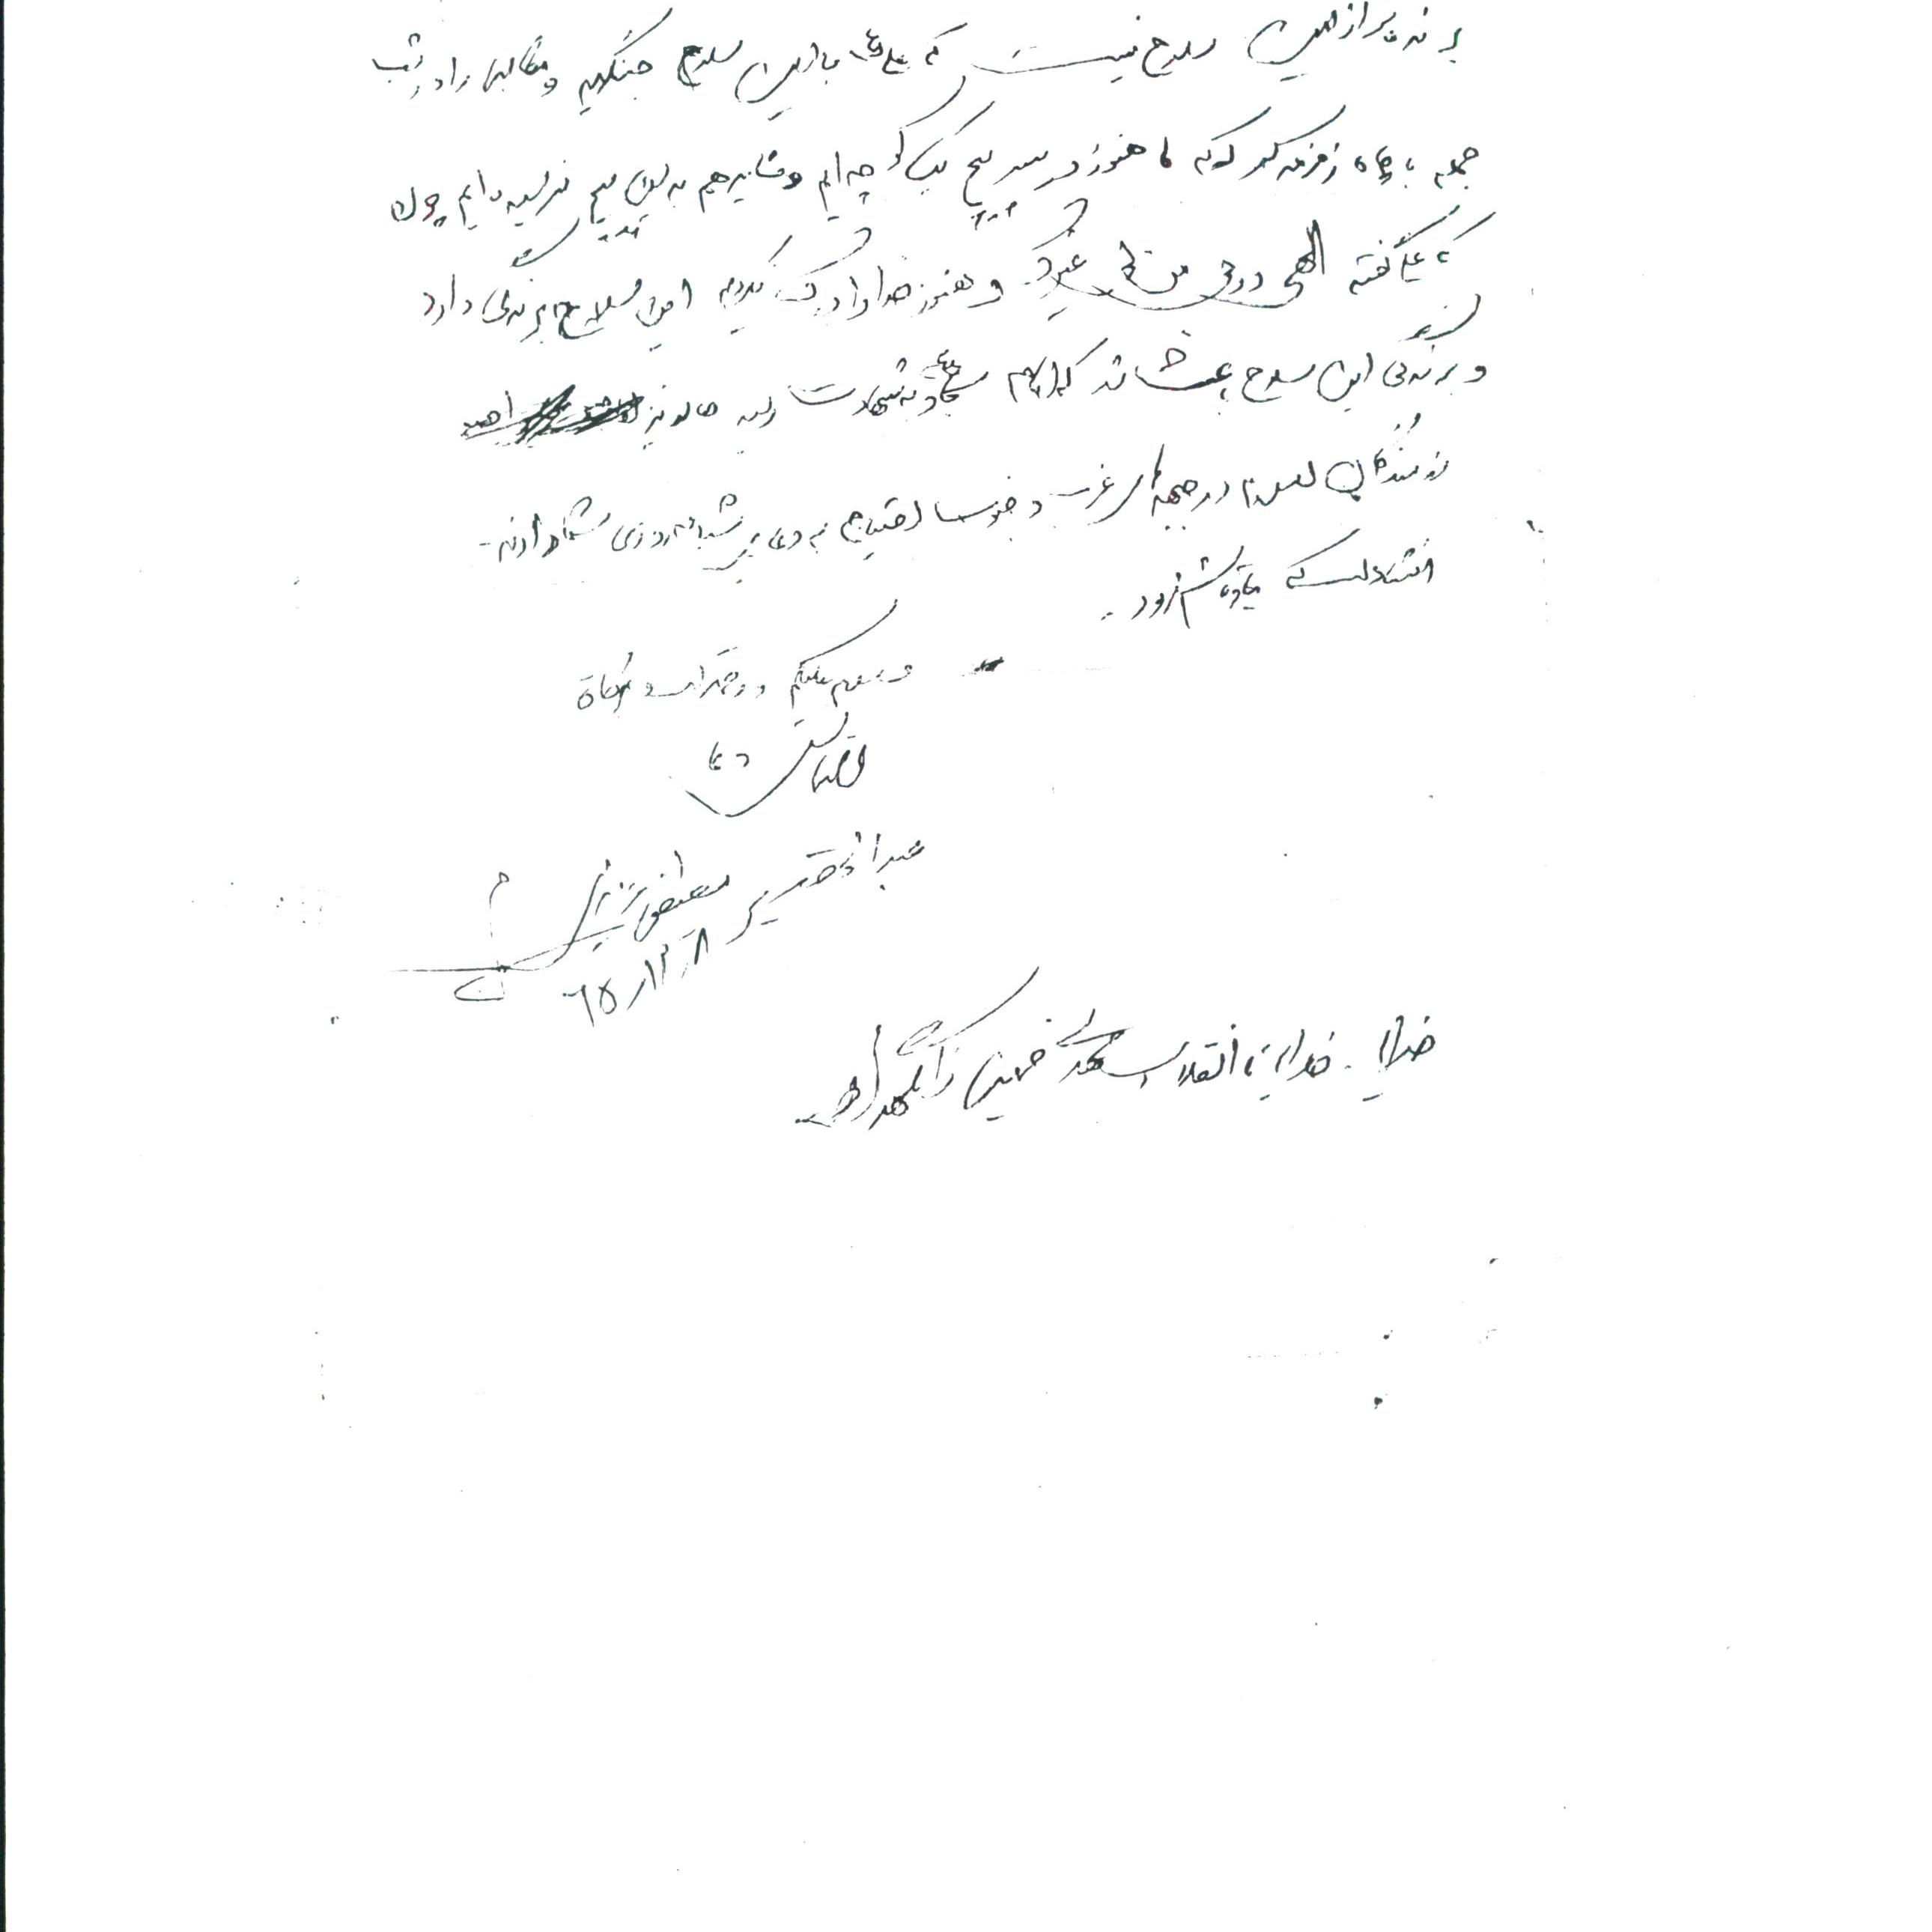 برنده‌تر از این سلاح نیست که علی (ع) با این سلاح جنگید و مقابل را در شب
جمعه با چاه زمزمه کرد که ما هنوز در سر پیچ یک کوچه‌ایم و شاید هم به این پیچ نرسیده‌ایم چون
که علی گفته الهی و ربی من لی غیرک و هنوز خدا را درک نکردیم این سلاح برندگی دارد
و برندگی این سلاح باعث شد که امام سجاد (ع) به شهادت رسید حال نیز
رزمندگان اسلام در جبهه‌های غرب و جنوب احتیاج به دعای شبانه‌روزی شما دارند.
انشاءالله که یادتان نرود.
والسلام علیکم و رحمة‌الله و برکاته
التماس دعا
عبد الحقیر مصطفی
۶۵/۱۲/۸
خدایا . خدایا تا انقلاب مهدی خمینی را نگهدار